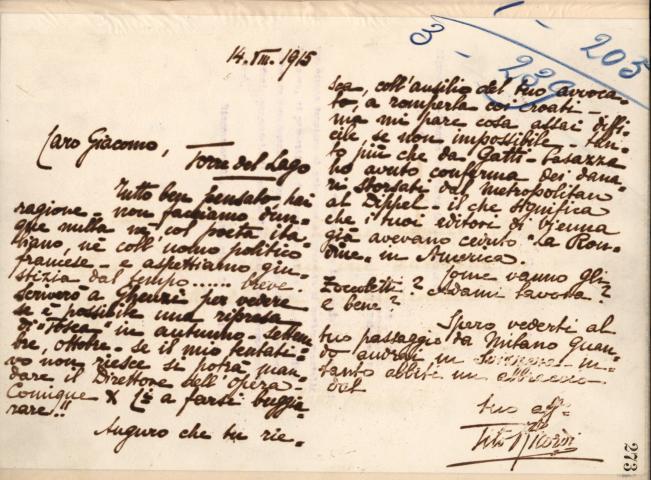 1 - 205
3 - 239
14. VIII. 1915
Caro Giacomo,
Torre del Lago
Tutto ben pensato, hai
ragione - non facciamo dun-
que nulla nè col poeta ita-
liano, nè coll'uomo politico
francese - e aspettiamo giu-
stizia dal tempo...... breve.
Scriverò a Gheuzi per vedere
se è possibile una ripresa
di "Tosca" in autunno - settem-
bre, ottobre - se il mio tentati-
vo non riesce se potrà man-
dare il Direttore dell'Opera
Comique X a farsi buggia-
rare!!
Auguro che tu rie-
sca, coll'ausilio del tuo avvoca-
to, a romperla coi croati -
ma mi pare cosa assai diffi-
cile, se non impossibile - tan-
to più che da Gatti-Casazza
ho avuto conferma dei dana-
ri sborsati dal Metropolitan
al Dippel - il che significa
che i tuoi editori di Vienna
già avevano ceduto "La Ron-
dine" in America.
Come vanno gli
Zoccoletti? Adami lavora?
e bene?
Spero vederti al
tuo passaggio da Milano quan-
do andrai in - in-
tanto abbiti un abbraccio
del
tuo aff.
Tito Ricordi
273